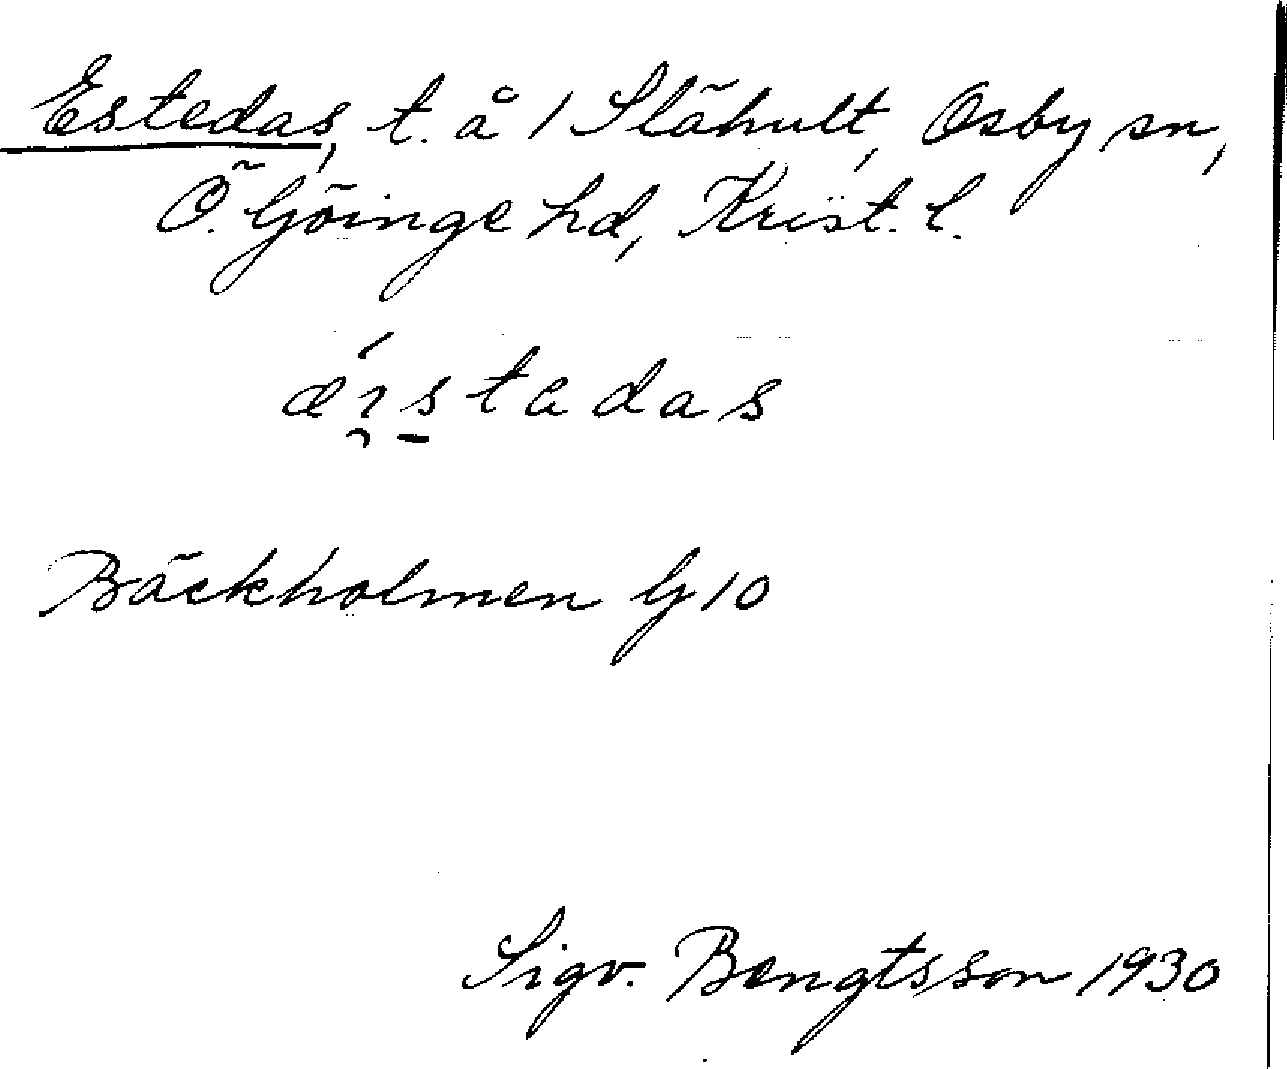 Estedas, t. å / Slähult, Osby sn,
Ö. Göinge hd, Krist. l.
Bäckholmen G 10
Sigv. Bengtsson 1930